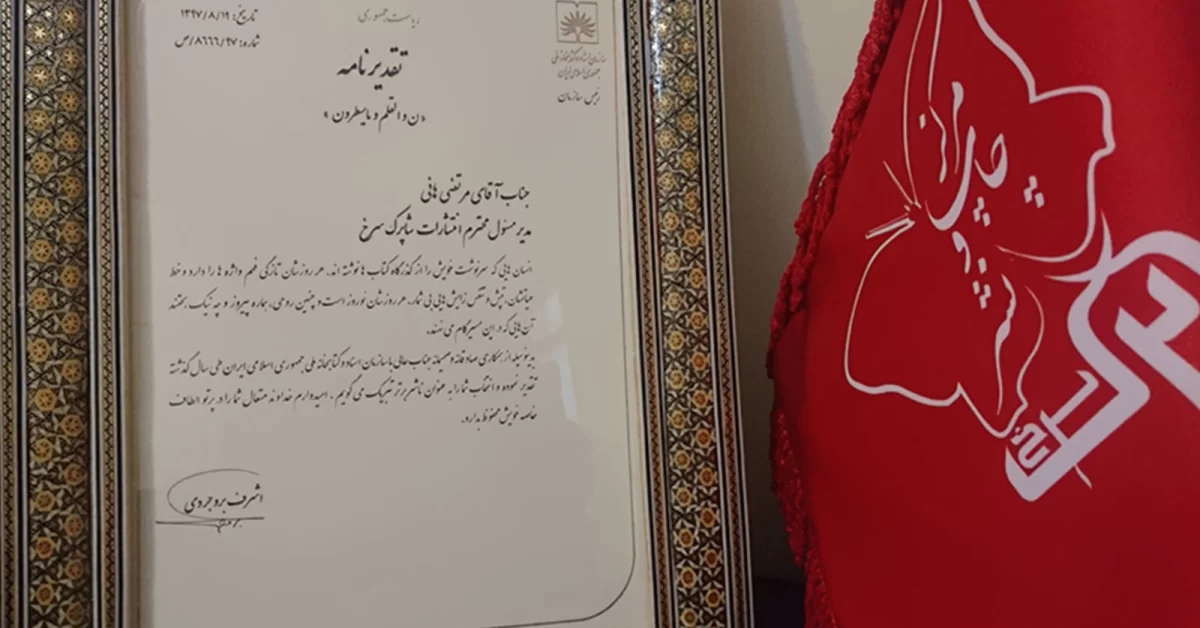 ریاست جمهوری
تاریخ: ۱۳۹۷/۸/۱۹
شماره: ۸۶۶۶/۹۷/ص
سازمان اسناد و کتابخانه ملی
جمهوری اسلامی ایران
رئیس سازمان
تقدیرنامه
«ن و القلم و مایسطرون»
جناب آقای مرتضی هانی
مدیر مسئول محترم انتشارات شاپرک سرخ
انسان هایی که سرنوشت خویش را از گذرگاه کتاب ها نوشته اند، هر روزشان تازگی فهم واژه ها را دارد و خط
حیاتشان، تپش و تنفس زایش هایی بی شمار. هر روزشان نوروز است و چنین روحی، هماره پیروز و چه نیک بختند
آن هایی که در این مسیر گام می نهند.
بدینوسیله از همکاری صادقانه و صمیمانه جناب عالی با سازمان اسناد و کتابخانه ملی جمهوری اسلامی ایران طی سال گذشته
تقدیر نموده و انتخاب شما را به عنوان ناشر برتر تبریک می گویم. امیدوارم خداوند متعال شما را در پرتو الطاف
خاصه خویش محفوظ بدارد.
اشرف بروجردی
مرکز
چاپ و
نشر